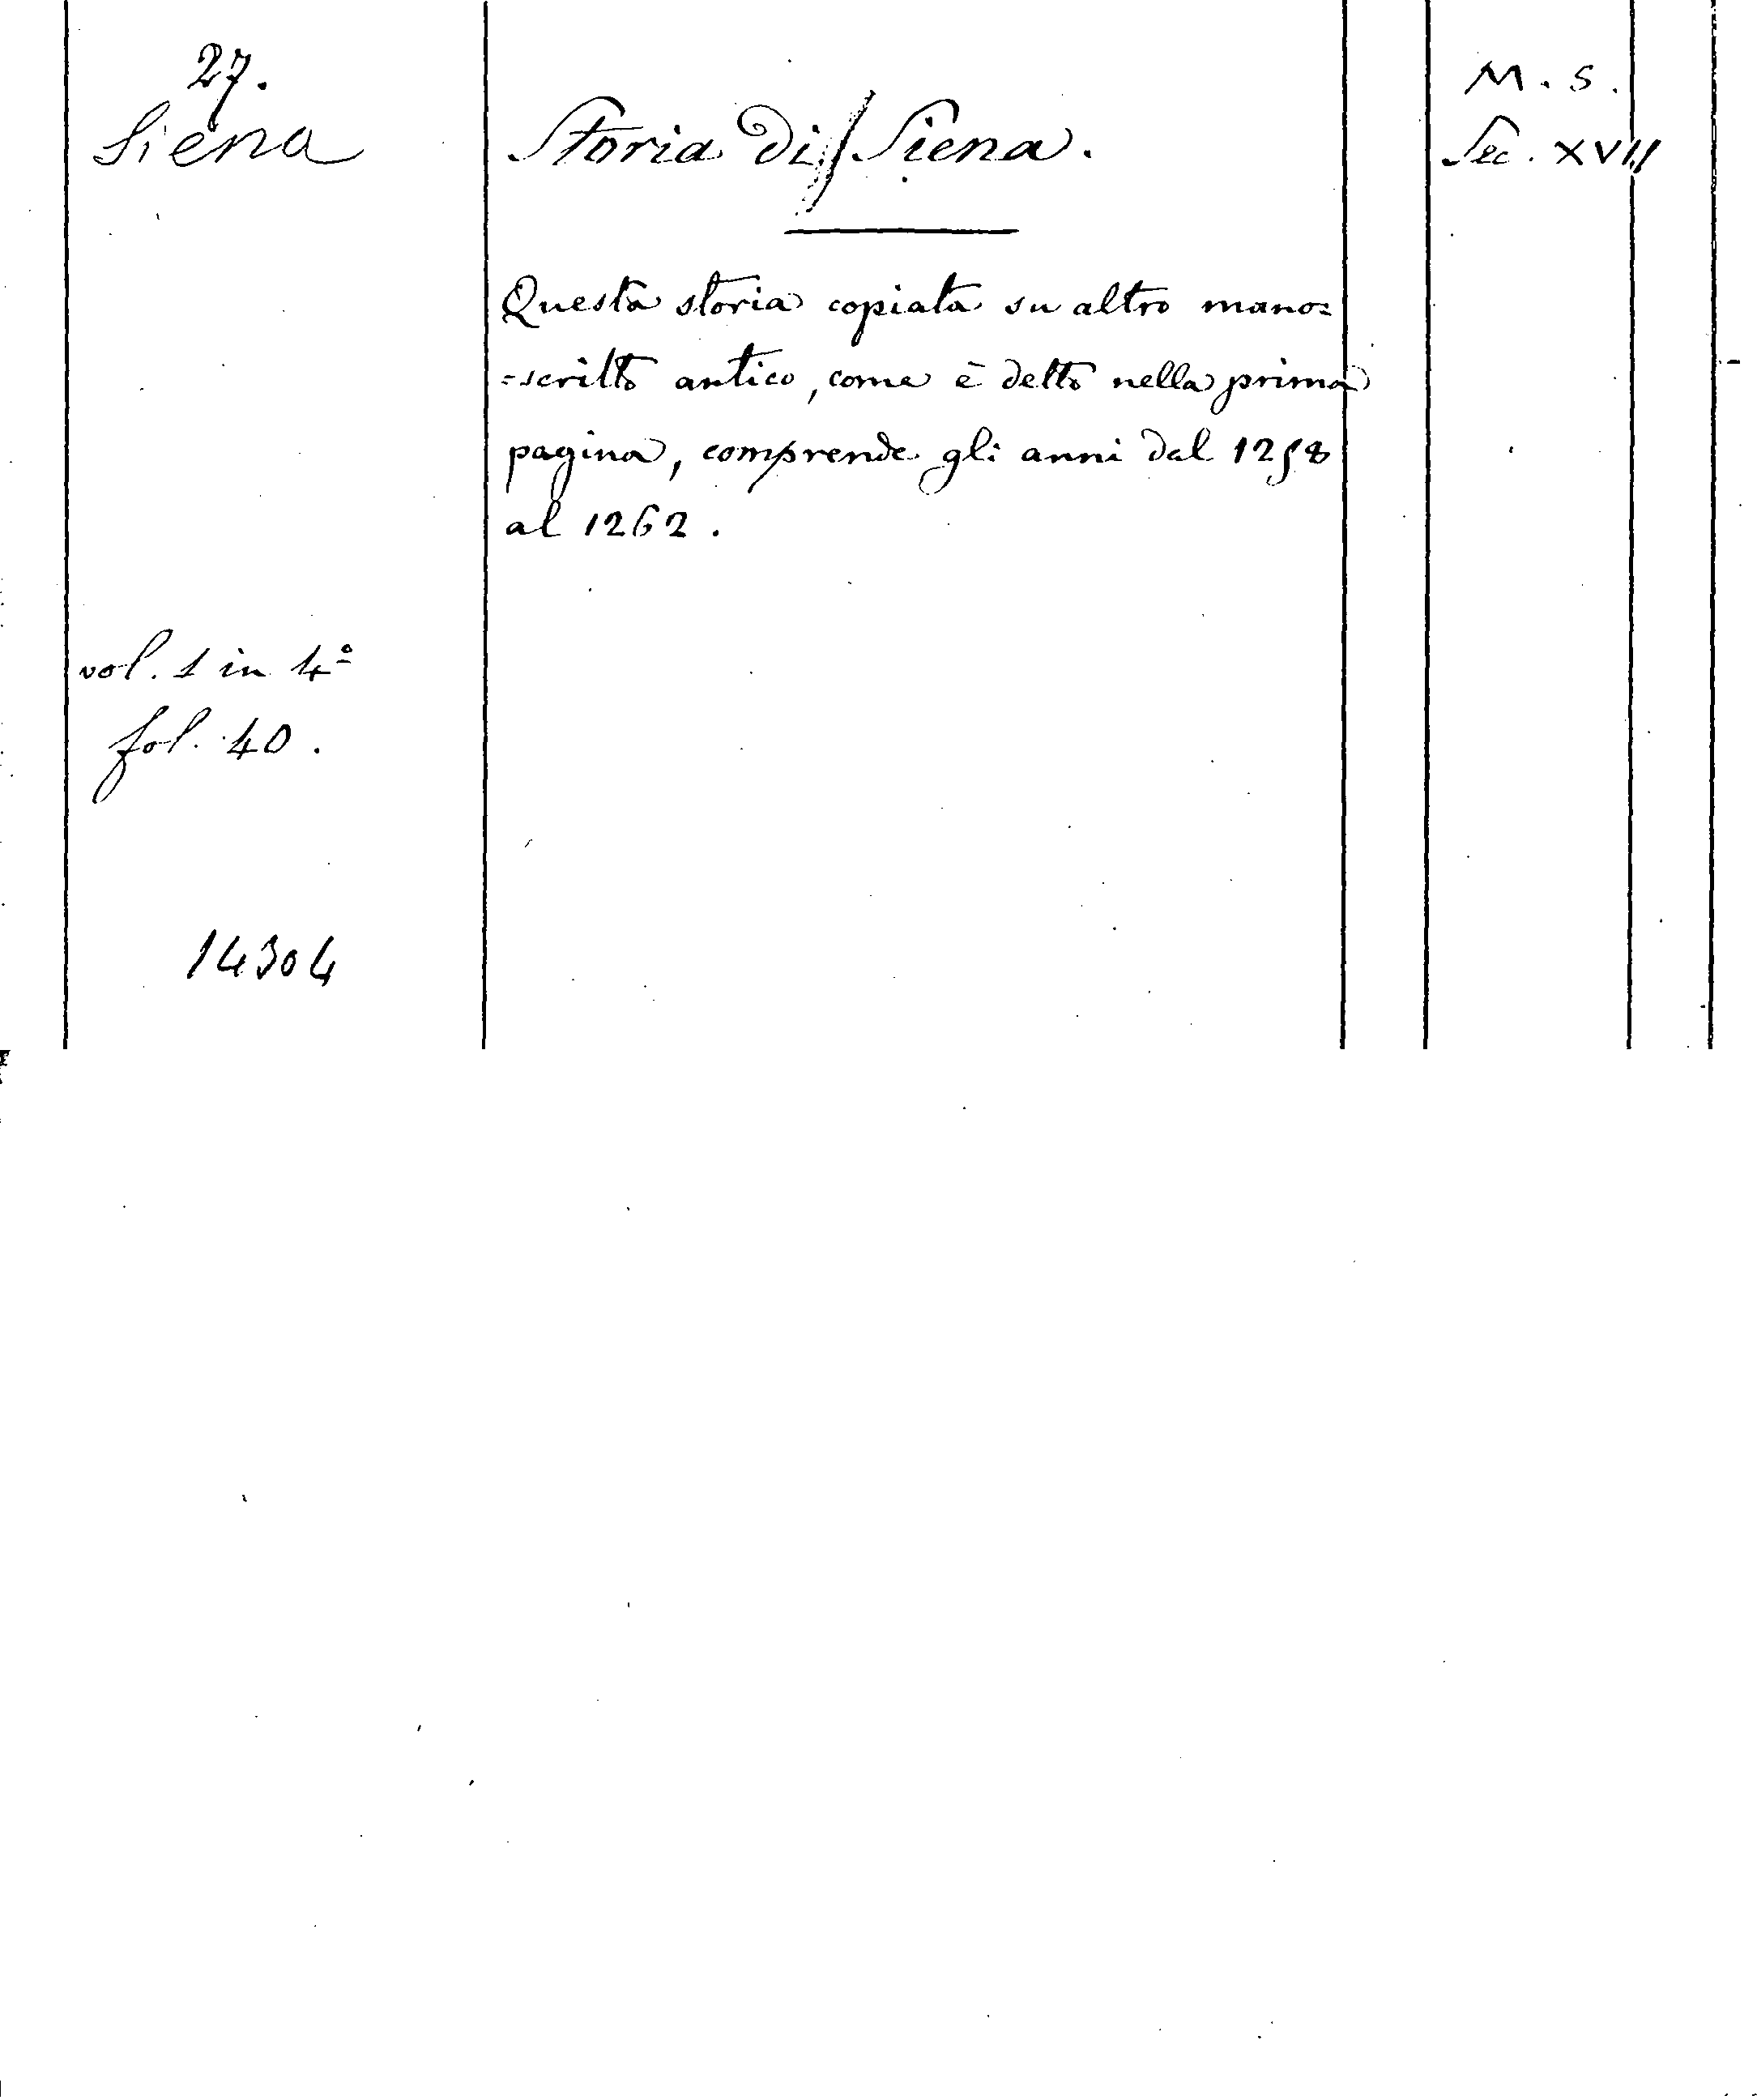 27.
Siena
Storia di Siena.
M. S.
Sec. XVII
Questa storia copiata su altro mano=
=scritto antico, come è detto nella prima
pagina, comprende gli anni dal 1258
al 1262.
vol. 1 in 4º
fol. 40.
14304